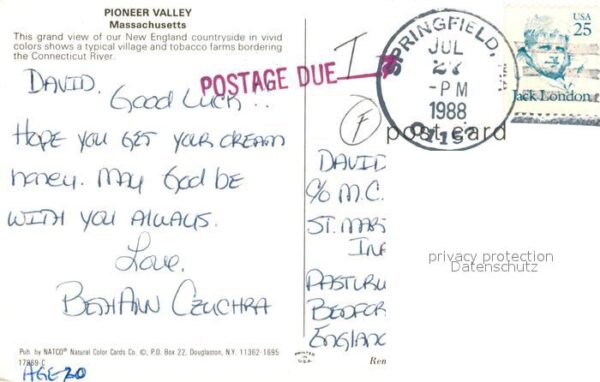 PIONEER VALLEY
Massachusetts
This grand view of our New England countryside in vivid
colors shows a typical village and tobacco farms bordering
the Connecticut River.
DAVID,
GOOD LUCK..
HOPE YOU GET YOUR DREAM
honey. MAY GOD BE
WITH YOU ALWAYS.
Love,
BETHANN CZUCHRA
AGE 20
Pub. by NATCO® Natural Color Cards Co. ©, P.O. Box 22, Douglaston, N.Y. 11362-1695
17869-C
POSTAGE DUE
I
F
SPRINGFIELD, MA
JUL
27
-PM
1988
01152
USA
25
Jack London
post card
DAVID
C/O M.C.
ST. MAR
IN
PASTUR
BEDFOR
ENGLAND
privacy protection
Datenschutz
PRINTED IN U.S.A.
Ren